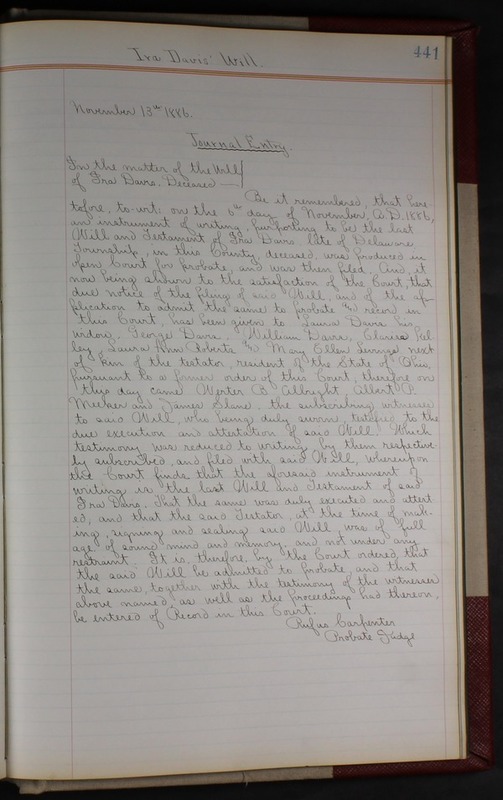 Ira Davis' Will.
441
November 13th 1886.
Journal Entry.
In the matter of the Will
of Ira Davis. Deceased
Be it remembered, that here-
tofore, to-wit: on the 6th day of November, A.D. 1886,
an instrument of writing, purporting to be the last
Will and Testament of Ira Davis late of Delaware
Township, in this County, deceased, was produced in
open Court for probate, and was then filed. And, it
now being shown to the satisfaction of the Court, that
due notice of the filing of said Will, and of the ap-
plication to admit the same to probate & record in
this Court, has been given to Laura Davis his
widow, George Davis, William Davis, Kel
ley, Laura Ann Roberts & Mary Ellen next
of kin of the testator, resident of the State of Ohio,
pursuant to a former order of this Court; therefore on
this day came B. Albright Albert P.
Meeker and James Slane, the subscribing witnesses
to said Will, who being duly sworn, testified to the
due execution and attestation of said Will. Which
testimony was reduced to writing, by them respective
ly subscribed, and filed with said Will, whereupon
the Court finds that the aforesaid instrument of
writing is the last Will and Testament of said
Ira Davis. That the same was duly executed and attest
ed, and that the said Testator, at the time of mak-
ing, signing and sealing said Will, was of full
age, of sound mind and memory, and not under any
restraint. It is, therefore, by the Court ordered, that
the said Will be admitted to probate, and that
the same, together with the testimony of the witnesses
above named, as well as the proceedings had thereon,
be entered of Record in this Court.
Rufus Carpenter
Probate Judge